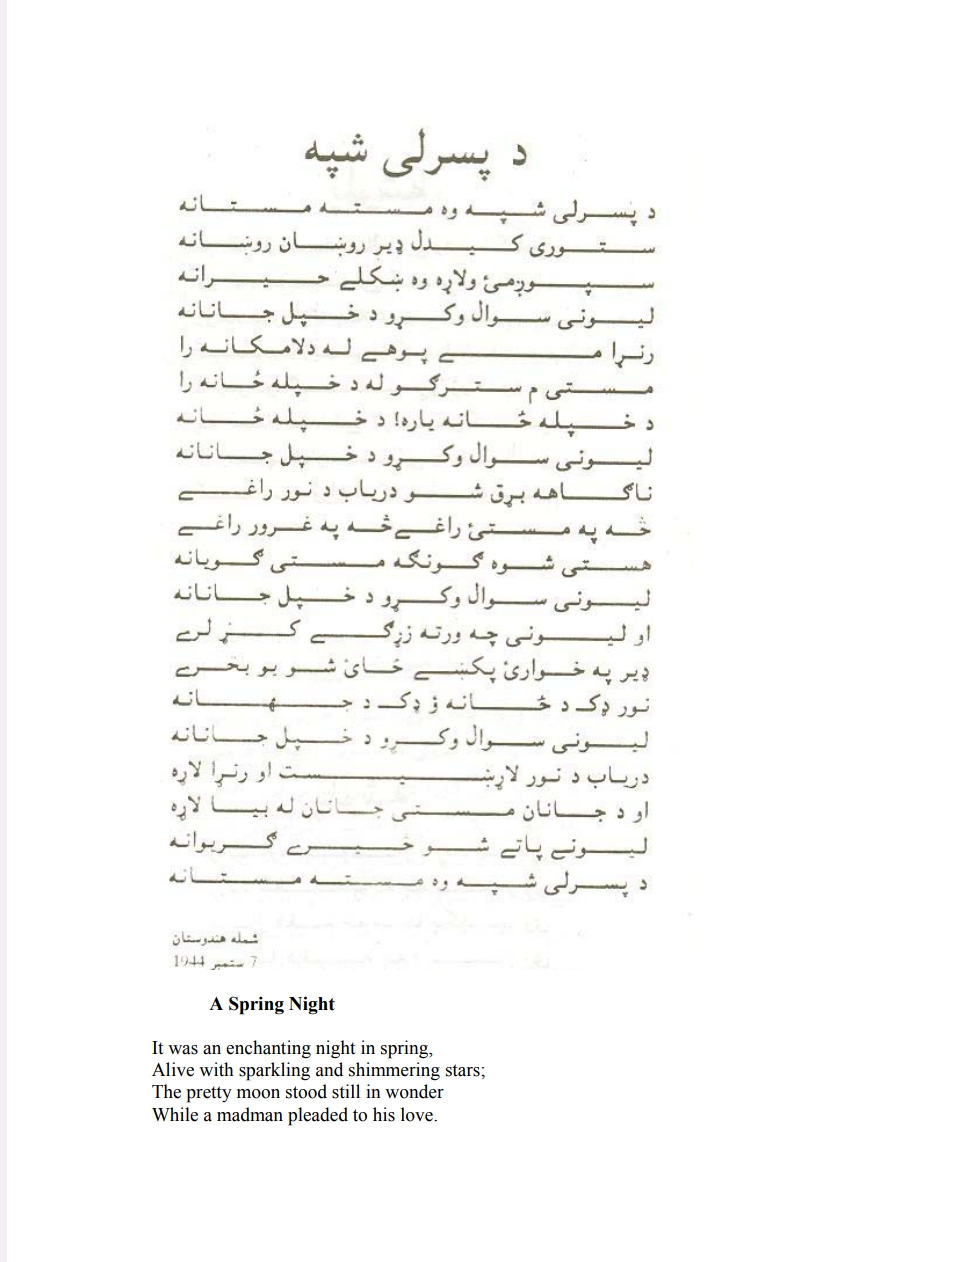 د پسرلی شپه
د پسرلی شپه وه مسته مستانه
ستوری کیدل ډیر روښان روښانه
سپوږمئ ولاړه وه ښکلے حیرانه
لیونی سوال وکړو د خپل جانانه
رنړا مے پوهے له دلامکانه را
مستی م سترګو له د خپله ځانه را
د خپله ځانه یاره! د خپله ځانه
لیونی سوال وکړو د خپل جانانه
ناګاهه برق شو درياب د نور راغے
څه په مستئ راغے څه په غرور راغے
هستی شوه ګونګه مستی ګویانه
لیونی سوال وکړو د خپل جانانه
او لیونی چه ورته زړګے کړ لرے
ډیر په خوارئ پکښے ځائ شو یو بخرے
نور ډک د ځانه ؤ ډک د جهانه
لیونی سوال وکړو د خپل جانانه
درياب د نور لاړښیست او رنړا لاړه
او د جانان مستی جانان له بیا لاړه
لیونے پاتے شو څیرے ګریوانه
د پسرلی شپه وه مسته مستانه
شمله هندوستان
7 ستمبر 1944
A Spring Night
It was an enchanting night in spring,
Alive with sparkling and shimmering stars;
The pretty moon stood still in wonder
While a madman pleaded to his love.